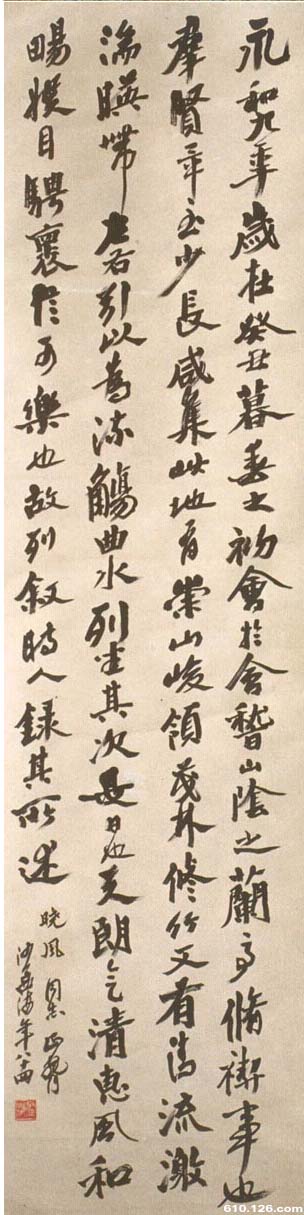 永和九年歲在癸丑暮春之初會於會稽山陰之蘭亭脩禊事也
羣賢畢至少長咸集此地有崇山峻領茂林修竹又有清流激
湍暎帶左右引以為流觴曲水列坐其次是日也天朗气清惠風和
暢娛目騁褱信可樂也故列敘時人錄其所述
曉風同志正
沙孟海年八十四
610.126.com